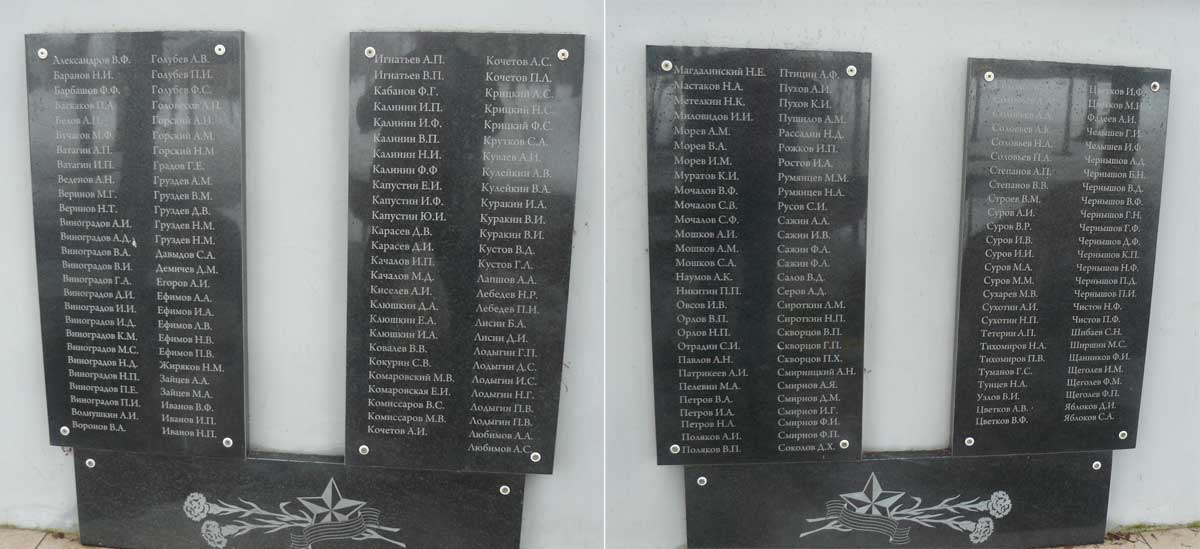 Александров В.Ф.
Баранов Н.И.
Барбашов Ф.Ф.
Баскаков П.А.
Белов А.П.
Бучагов М.Ф.
Ватагин А.П.
Ватагин И.П.
Веденов А.Н.
Веринов М.Г.
Веринов Н.Т.
Виноградов А.И.
Виноградов А.Д.
Виноградов В.А.
Виноградов В.И.
Виноградов Г.А.
Виноградов Д.И.
Виноградов И.И.
Виноградов И.Д.
Виноградов К.М.
Виноградов М.С.
Виноградов Н.Д.
Виноградов Н.П.
Виноградов П.Е.
Виноградов П.И.
Волнушкин А.И.
Воронов В.А.
Голубев А.В.
Голубев П.И.
Голубев Ф.С.
Головесов А.И.
Горский А.И.
Горский А.М.
Горский Н.М
Градов Г.Е.
Груздев А.М.
Груздев В.М.
Груздев Д.В.
Груздев Н.М.
Груздев Н.М.
Давыдов С.А.
Демичев Д.М.
Егоров А.И.
Ефимов А.А.
Ефимов И.А.
Ефимов Л.В.
Ефимов Н.В.
Ефимов П.В.
Жиряков Н.М.
Зайцев А.А.
Зайцев М.А.
Иванов В.Ф.
Иванов И.П.
Иванов Н.П.
Игнатьев А.П.
Игнатьев В.П.
Кабанов Ф.Г.
Калинин И.П.
Калинин И.Ф.
Калинин В.П.
Калинин Н.И.
Калинин Ф.Ф
Капустин Е.И.
Капустин И.Ф.
Капустин Ю.И.
Карасев Д.В.
Карасев Д.И.
Качалов И.П.
Качалов М.Д.
Киселев А.И.
Клюшкин Д.А.
Клюшкин Е.А.
Клюшкин И.А.
Ковалев В.В.
Кокурин С.В.
Комаровский М.В.
Комаровская Е.И.
Комиссаров В.С.
Комиссаров М.В.
Кочетов А.И.
Кочетов А.С.
Кочетов П.Л.
Крицкий А.С.
Крицкий Н.С.
Крицкий Ф.С.
Крутков С.А.
Куваев А.И.
Кулейкин А.В.
Кулейкин В.А.
Куракин И.А.
Куракин В.И.
Куракин В.И.
Кустов В.Д.
Кустов Г.Л.
Лапшов А.А.
Лебедев Н.Р.
Лебедев П.И.
Лисин Б.А.
Лисин Д.И.
Лодыгин Г.П.
Лодыгин Д.С.
Лодыгин И.С.
Лодыгин Н.Г.
Лодыгин П.В.
Лодыгин П.В.
Любимов А.А.
Любимов А.С.
Магдалинский Н.Е.
Мастаков Н.А.
Метелкин Н.К.
Миловидов И.И.
Морев А.М.
Морев В.А.
Морев И.М.
Муратов К.И.
Мочалов В.Ф.
Мочалов С.В.
Мочалов С.Ф.
Мошков А.И.
Мошков А.М.
Мошков С.А.
Наумов А.К.
Никитин П.П.
Овсов И.В.
Орлов В.П.
Орлов Н.П.
Отрадин С.И.
Павлов А.Н.
Патрикеев А.И.
Пелевин М.А.
Петров В.А.
Петров И.А.
Петров Н.А.
Поляков А.И.
Поляков В.П.
Птицин А.Ф.
Пухов А.И.
Пухов К.И.
Пушилов А.М.
Рассадин Н.Д.
Рожков И.П.
Ростов И.А.
Румянцев М.М.
Румянцев Н.А.
Русов С.И.
Сажин А.А.
Сажин И.В.
Сажин Ф.А.
Сажин Ф.А.
Салов В.Д.
Серов А.Д.
Сироткин Л.М.
Сироткин Н.П.
Скворцов В.П.
Скворцов Г.П.
Скворцов П.Х.
Смирницкий А.Н.
Смирнов А.Я.
Смирнов Д.М.
Смирнов И.Г.
Смирнов Ф.И.
Смирнов Ф.П.
Соколов Д.Х.
Соловьев А.А.
Соловьев А.К.
Соловьев Н.А.
Соловьев П.А.
Степанов А.П.
Степанов В.В.
Строев В.М.
Суров А.И.
Суров В.Р.
Суров И.В.
Суров И.И.
Суров М.А.
Суров М.М.
Сухарев М.В.
Сухотин А.И.
Сухотин Н.П.
Тетерин А.П.
Тихомиров Н.А.
Тихомиров П.В.
Туманов Г.С.
Тунцев Н.А.
Узлов В.И.
Цветков А.В.
Цветков В.Ф.
Цветков И.Ф.
Цветков М.И.
Фадеев А.И.
Челышев Г.И.
Челышев И.Ф.
Чернышов А.Д.
Чернышов Б.Н.
Чернышов В.Д.
Чернышов В.Ф.
Чернышов Г.Н.
Чернышов Г.Ф.
Чернышов Д.Ф.
Чернышов К.П.
Чернышов Н.Ф.
Чернышов П.Д.
Чернышов П.И.
Чистов Н.Ф.
Чистов П.Ф.
Шибаев С.Н.
Ширшин М.С.
Щанников Ф.И.
Щеголев И.М.
Щеголев Ф.М.
Щеголев Ф.П.
Яблоков Д.И.
Яблоков С.А.